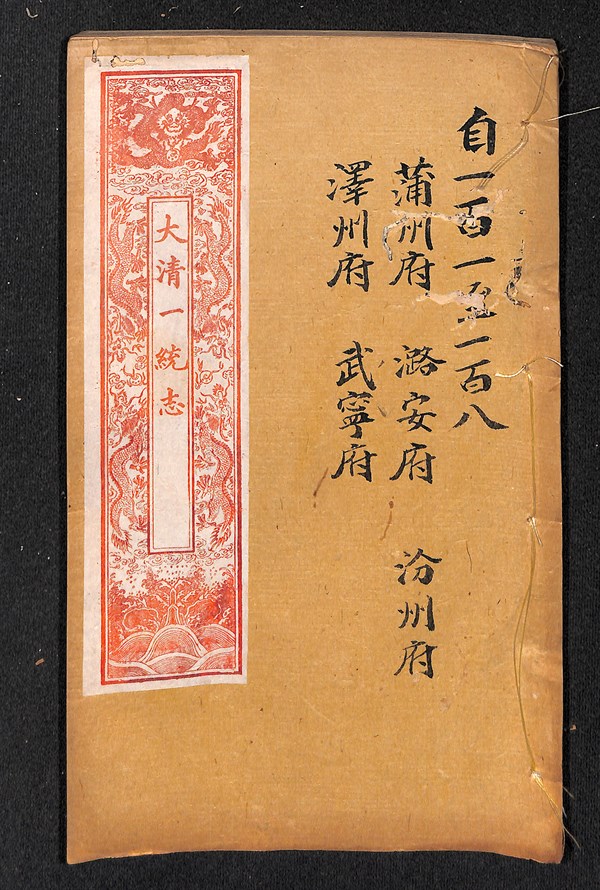 自一百一至一百八
蒲州府 潞安府 汾州府
澤州府 武寧府
大清一統志